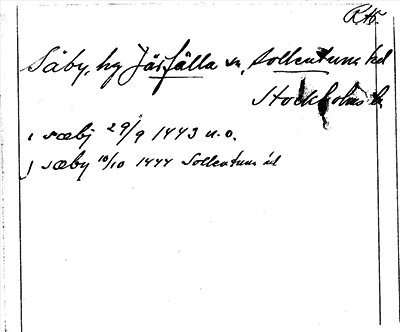 RA5.
Säby, hg Järfälla sn, Sollentuna hd
Stockholms l.
i sæbj 29/9 1443 u.o.
j sæby 10/10 1444 Sollentuna